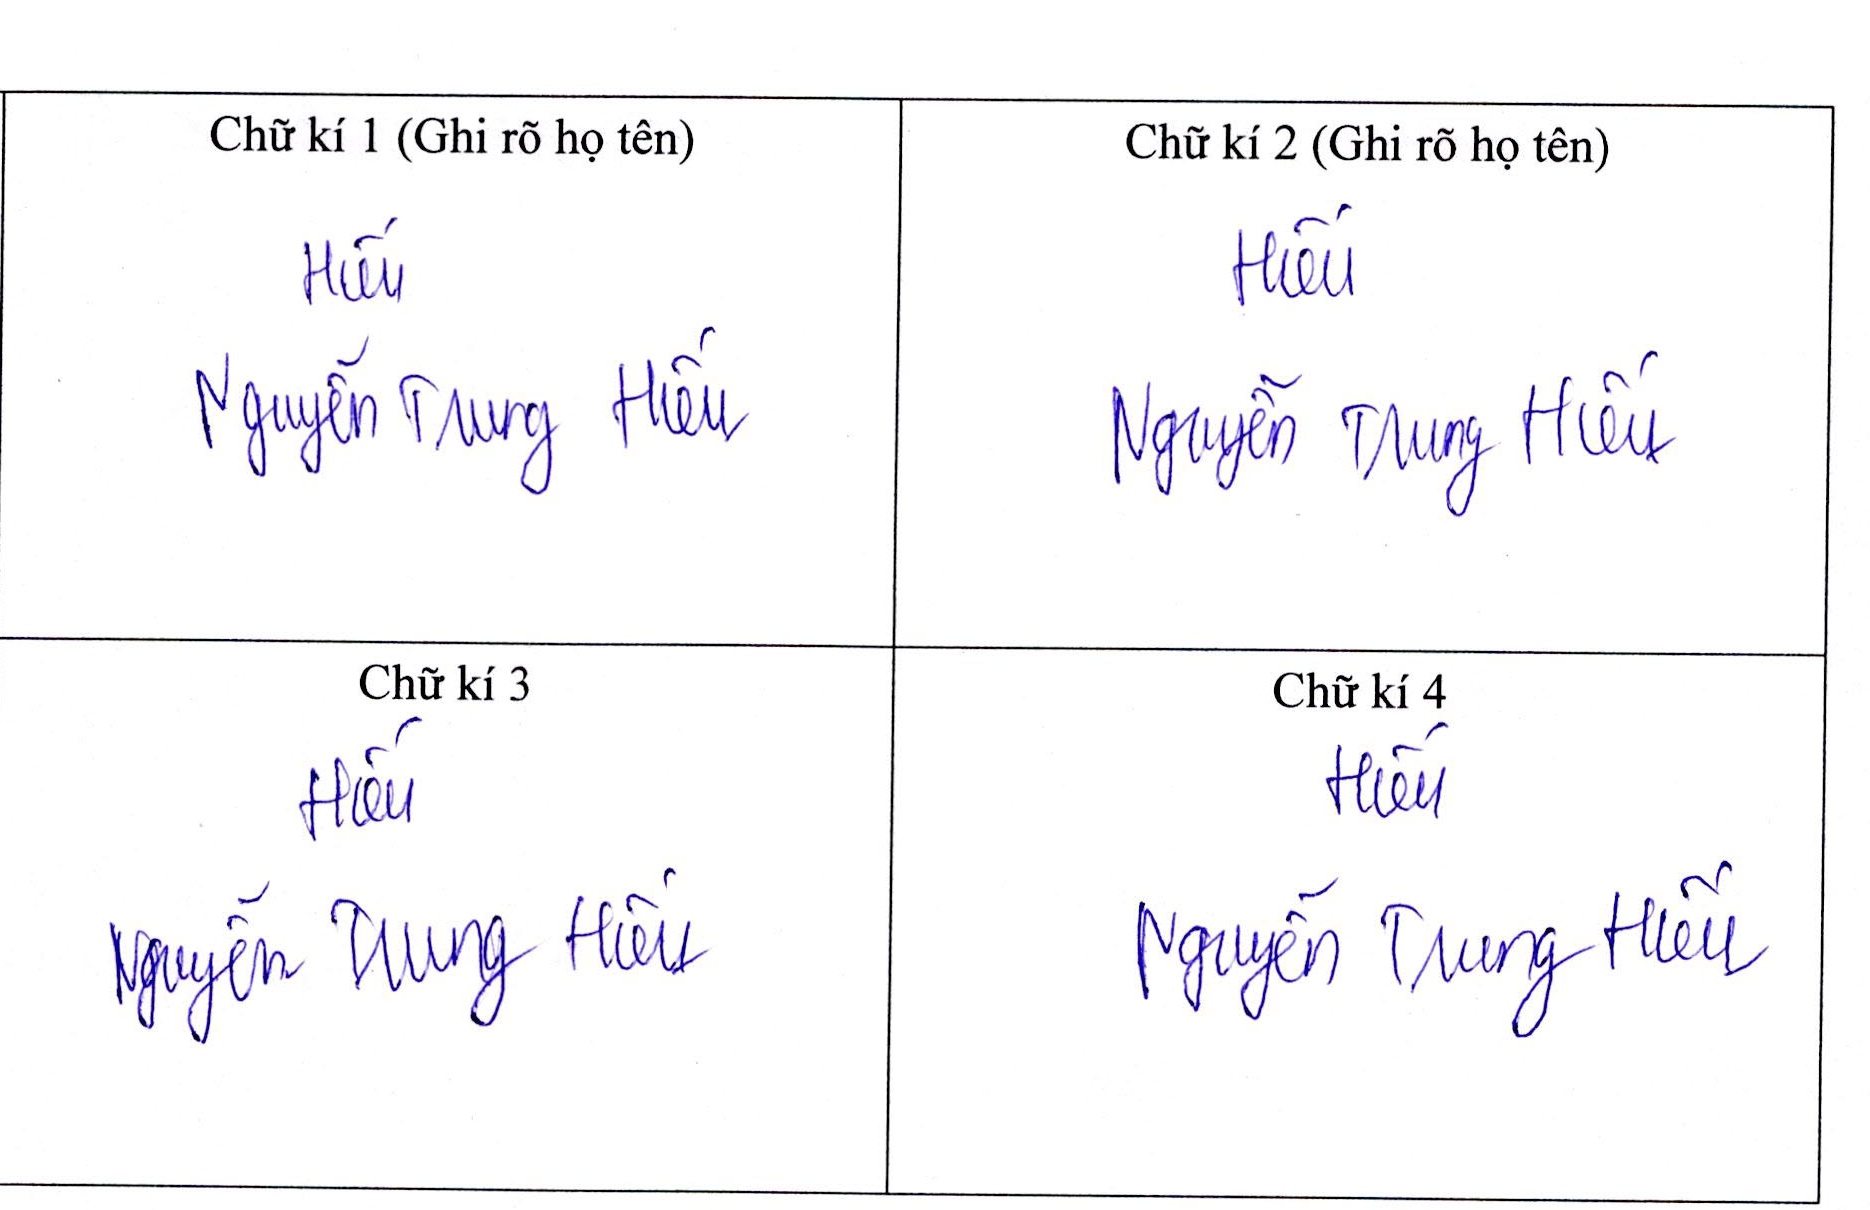 Chữ kí 1 (Ghi rõ họ tên)
Hiếu
Nguyễn Trung Hiếu
Chữ kí 2 (Ghi rõ họ tên)
Hiếu
Nguyễn Trung Hiếu
Chữ kí 3
Hiếu
Nguyễn Trung Hiếu
Chữ kí 4
Hiếu
Nguyễn Trung Hiếu